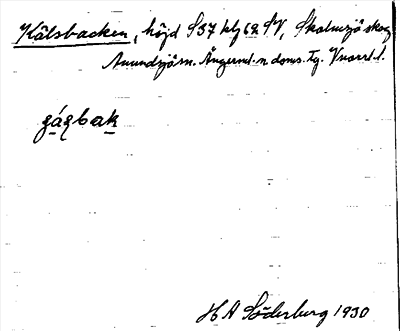 Kälsbacken, höjd S37 klj 68 SV, Skalmsjö skog
Anundsjö sn. Ångerml. n doms. Tg.
gázbak
H A Söderberg 1930